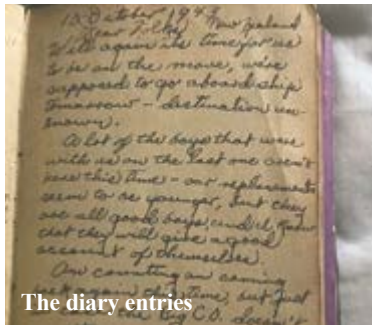 10 October 1943 New Zealand
Dear Folks,
Well again its time for us
to be on the move, we're
supposed to go aboard ship
tomorrow - destination un-
known.
A lot of the boys that were
with us on the last one aren't
here this time - our replacements
seem to be younger, but they
are all good boys, and I know
that they will give a good
account of themselves.
Am counting on coming
back again this time, but just
in case the big C.O. doesn't
The diary entries